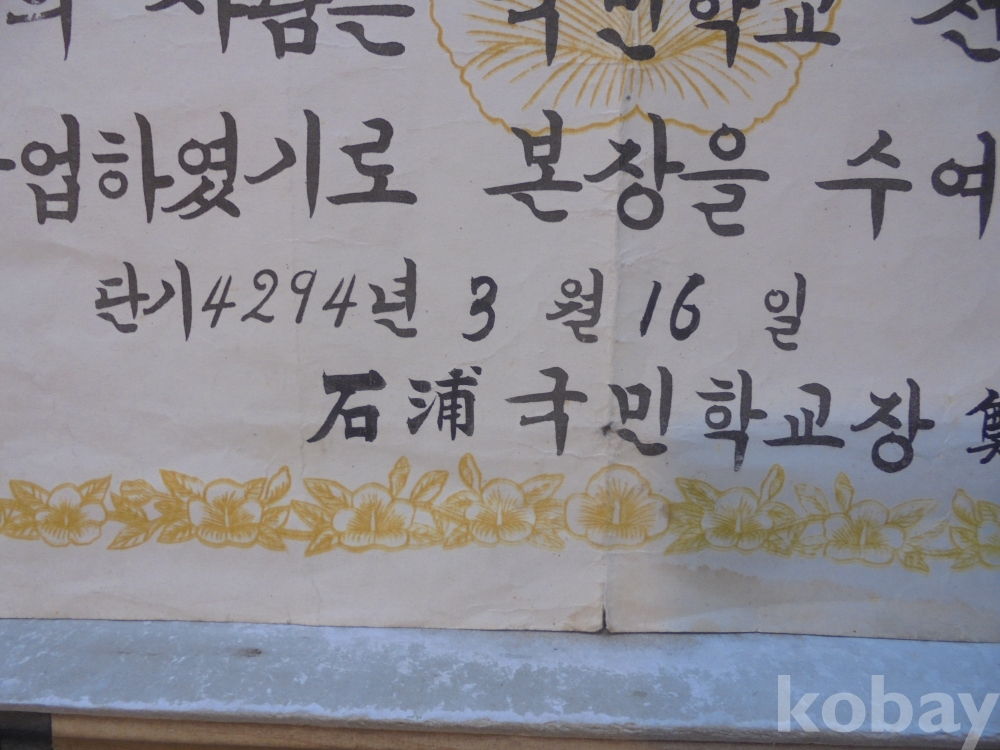 의 사람은 국민학교 전
업하였기로 본장을 수여
단기4294년 3 월 16 일
石浦 국민학교장 鄭
kobay